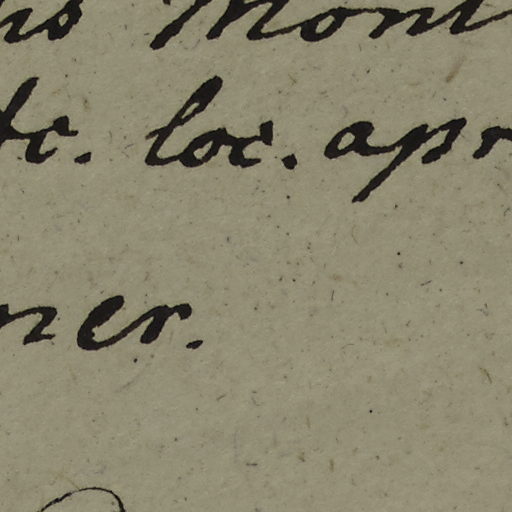 his Mont
tc. loc. apr
ner.